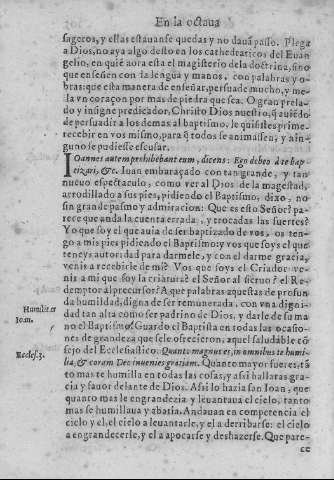 En la octaua
sageros, y ellas estauanse quedas y no dauã passo. Plega
a Dios, no aya algo desto en los cathedraticos del Euan
gelio, en quiẽ aora esta el magisterio dela doctrina, sino
que enseñen con la lengua y manos, con palabras y o-
bras: que esta manera de enseñar, persuade mucho, y me-
lla vn coraçon por mas de piedra que sea. O gran prela-
do y insigne predicador, Christo Dios nuestro, q̃ auiẽdo
de persuadir a los demas al baptismo, le quisistes prime-
recebir en vos mismo, para q̃ todos se animassen, y nin-
guno se pudiesse escusar.
Ioannes autem prohibebant eum, dicens: Ego debeo à te bap-
tizari, &c. Iuan embaraçado con tan grande, y tan
nueuo espectaculo, como ver al Dios de la magestad,
arrodillado a sus pies, pidiendo el Baptismo, dixo, no
sin grande pasmo y admiracion: Que es esto Señor? pa-
rece que anda la cuenta errada, y trocadas las suertes?
Yo que soy el que auia de ser baptizado de vos, os ten-
go a mis pies pidiendo el Baptismo: y vos que soys el que
teneys autoridad para darmele, y con el darme gracia,
venis a recebirle de mi? Vos que soys el Criador veni-
a mi que soy la criatura? el Señor al sieruo? el Re-
demptor al precursor? A que palabras aquestas de profun-
da humildad, digna de ser remunerada, con vna digni-
dad tan alta como ser padrino de Dios, y darle de su ma
no el Baptismo! Guardo el Baptista en todas las ocasio-
nes de grandeza que sele ofrecieron, aquel saludable cõ
sejo del Ecclesiastico: Quanto magnus es, in omnibus te humi-
lia, & coram Deo inuenies gratiam. Quanto mayor fueres, tã
to mas te humilla en todas las cosas, y assi hallaras gra-
cia y fauor delante de Dios. Assi lo hazia san Ioan, que
quanto mas le engrandezia y leuantaua el cielo, tanto
mas se humillaua y abatia. Andauan en competencia el
cielo y el, el cielo a leuantarle, y el a derribarse: el cielo
a engrandecerle, y el a apocarse y deshazerse. Que pare-
ce
Humilitas
Ioan.
Eccles. 3.